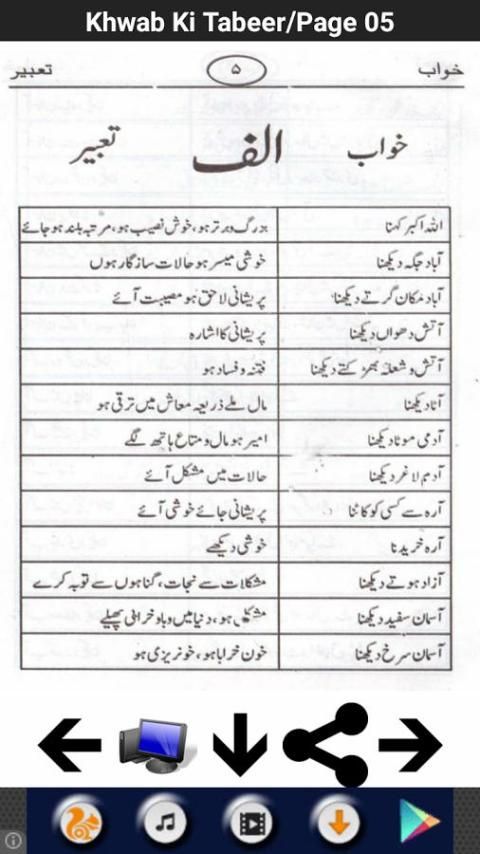 Khwab Ki Tabeer/Page 05
خواب ۵ تعبیر
خواب الف تعبیر
اللہ اکبر کہنا بزرگ و برتر ہو، خوش نصیب ہو، مرتبہ بلند ہو جائے
آباد جگہ دیکھنا خوشی میسر ہو حالات سازگار ہوں
آباد مکان گرتے دیکھنا پریشانی لاحق ہو مصیبت آئے
آتش دھواں دیکھنا پریشانی کا اشارہ
آتش و شعلہ بھڑکتے دیکھنا فتنہ و فساد ہو
آٹا دیکھنا مال ملے ذریعہ معاش میں ترقی ہو
آدمی موٹا دیکھنا امیر ہو مال و متاع ہاتھ لگے
آدم لاغر دیکھنا حالات میں مشکل آئے
آرہ سے کسی کو کاٹنا پریشانی جائے خوشی آئے
آرہ خریدنا خوشی دیکھے
آزاد ہوتے دیکھنا مشکلات سے نجات، گناہوں سے توبہ کرے
آسمان سفید دیکھنا مشکل ہو، دنیا میں وبا و خرابی پھیلے
آسمان سرخ دیکھنا خون خرابا ہو، خونریزی ہو